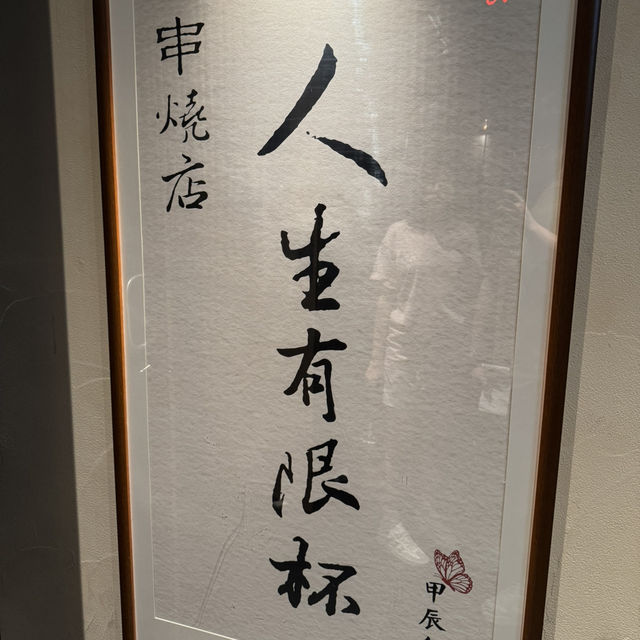 人生有限杯
串燒店
甲辰